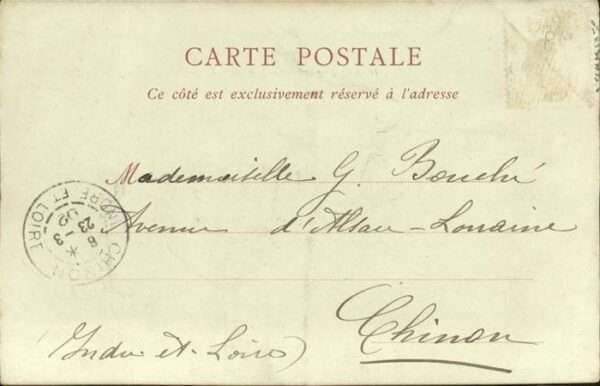 CARTE POSTALE
Ce côté est exclusivement réservé à l'adresse
Mademoiselle G. Bouché
Avenue d'Alsace-Lorraine
Chinon
(Indre et-Loire)
CHINON
INDRE ET LOIRE
23
02